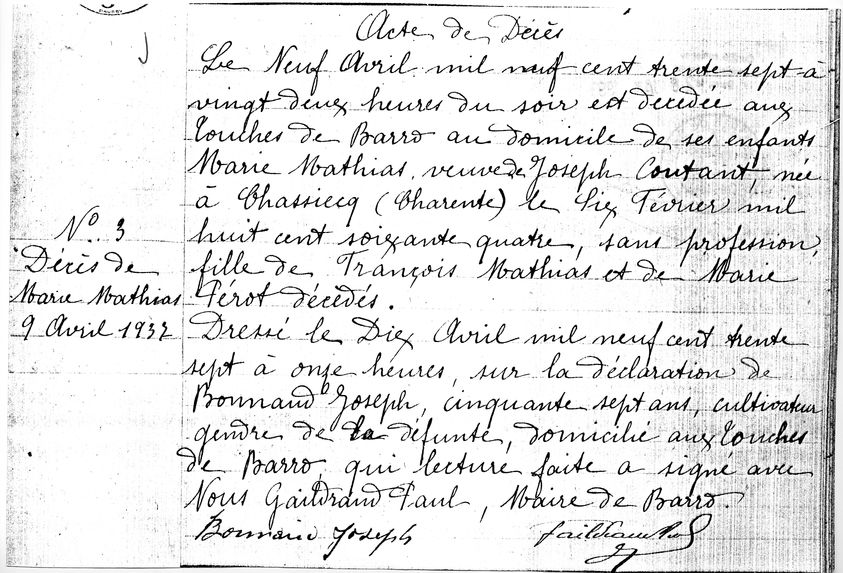 Acte de Décès
Le Neuf Avril mil neuf cent trente sept à
vingt deux heures du soir est décédée aux
Touches de Barro au domicile de ses enfants
Marie Mathias, veuve de Joseph Coutant, née
à Chassiecq (Charente) le Six Février mil
huit cent soixante quatre, sans profession,
fille de François Mathias et de Marie
Pérot décédés.
N° 3
Décès de
Marie Mathias
9 Avril 1937
Dressé le Dix Avril mil neuf cent trente
sept à onze heures, sur la déclaration de
Bonnaud Joseph, cinquante sept ans, cultivateur
gendre de la défunte, domicilié aux Touches
de Barro, qui lecture faite a signé avec
Nous Gaildrand Paul, Maire de Barro.
Bonnaud Joseph